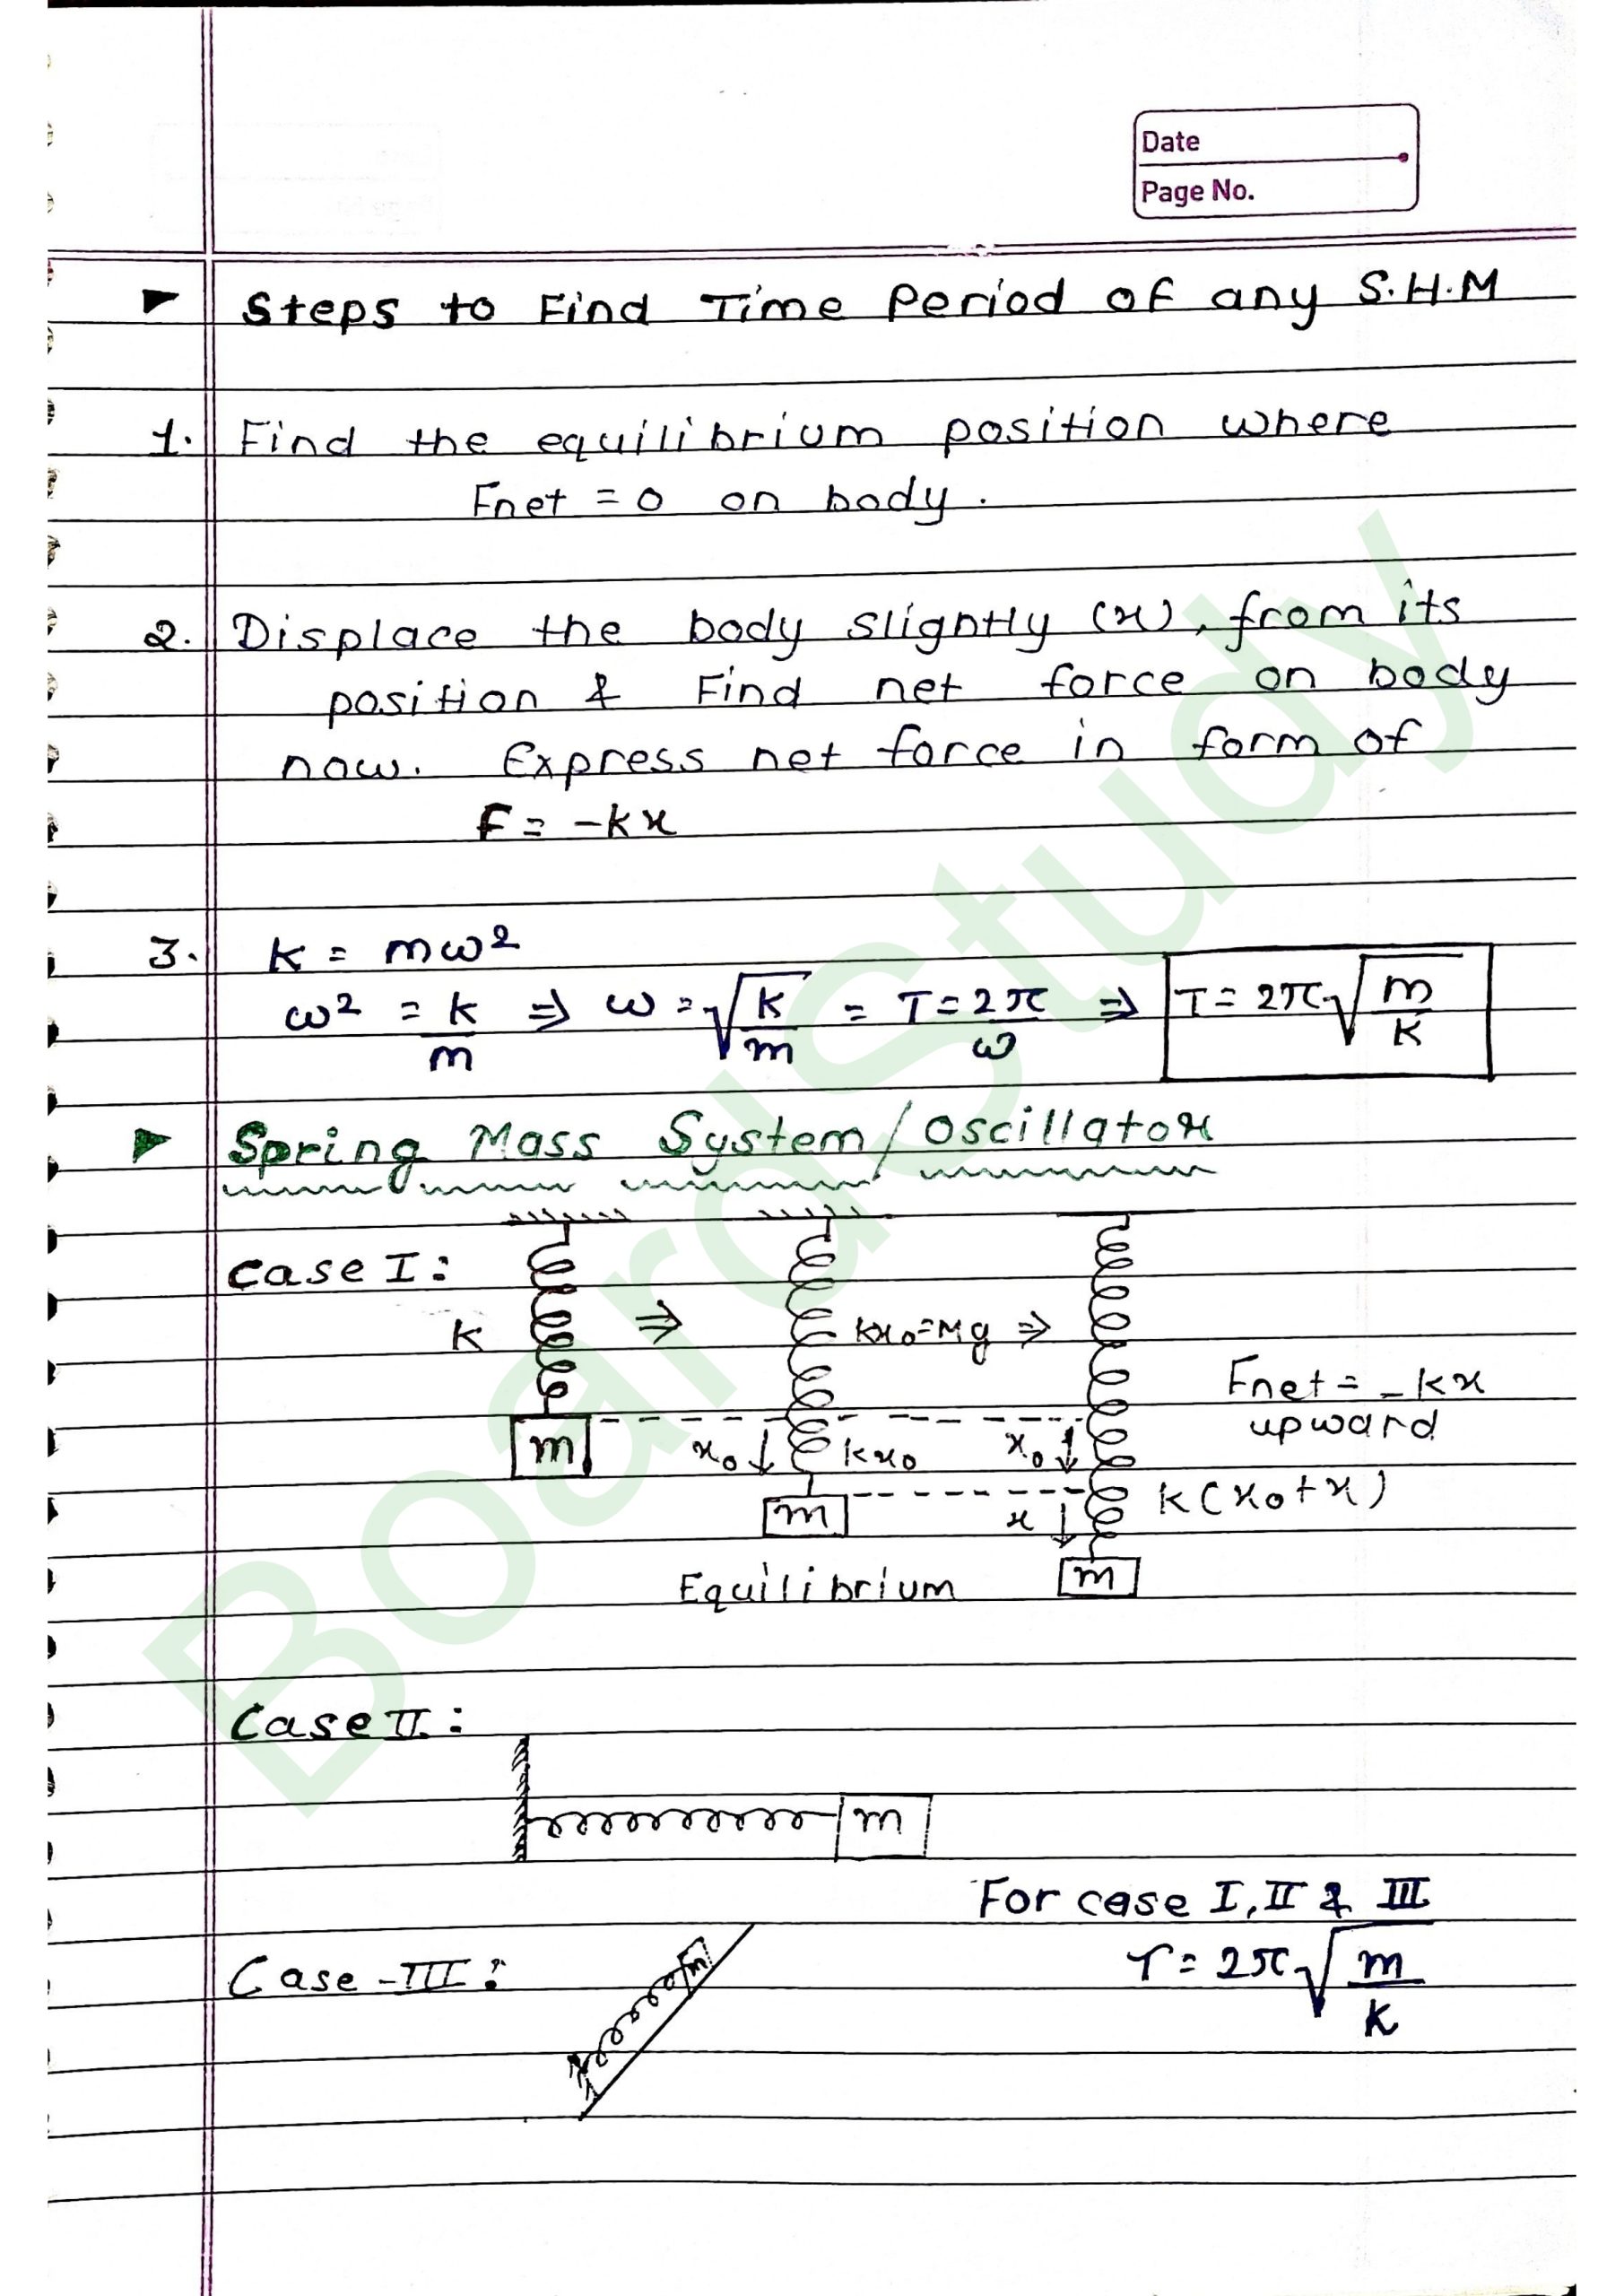 Date
Page No.
▶ Steps to Find Time Period of any S.H.M
1. Find the equilibrium position where
Fnet = 0 on body.
2. Displace the body slightly (x), from its
position & Find net force on body
now. Express net force in form of
F = -kx
3. K = mω²
ω² = k/m ⇒ ω = √(k/m) = T = 2π/ω ⇒ T = 2π√(m/K)
▶ Spring Mass System/Oscillator
Case I:
K ⇒ kx₀=Mg ⇒
Fnet = -kx
upward
m x₀↓ kx₀ x₀↓
m x↓ k(x₀+x)
Equilibrium m
Case II:
m
For case I, II & III
Case-III: m T = 2π√(m/k)
BoardStudy